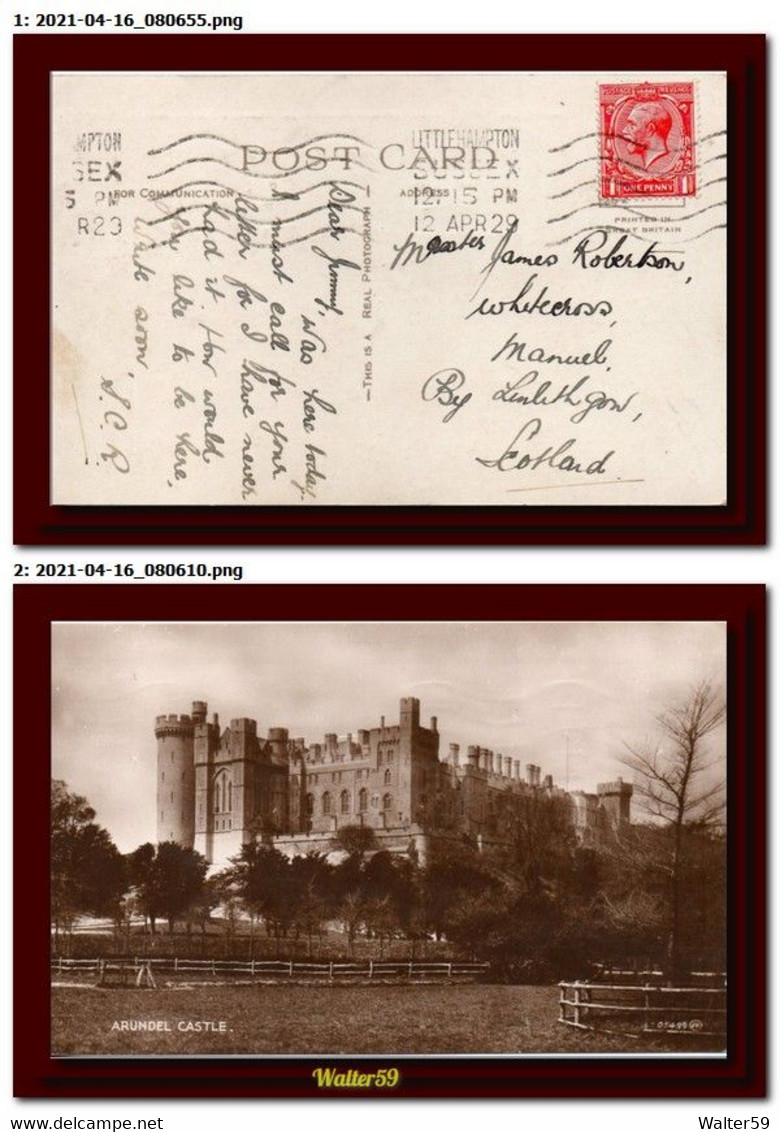 1: 2021-04-16_080655.png
POST CARD
FOR COMMUNICATION
ADDRESS
MPTON
SEX
5 PM
R29
LITTLEHAMPTON
SUSSEX
12.15 PM
12 APR 29
POSTAGE REVENUE
1 ONE PENNY 1
PRINTED IN
GREAT BRITAIN
THIS IS A REAL PHOTOGRAPH
Dear Jimmy,
was here today.
I must call for your
letter for I have never
had it. How would
you like to be here.
Write soon,
J.C.R.
Master James Robertson,
Whitecross,
Manuel,
By Linlithgow,
Scotland.
2: 2021-04-16_080610.png
ARUNDEL CASTLE.
Walter59
Walter59